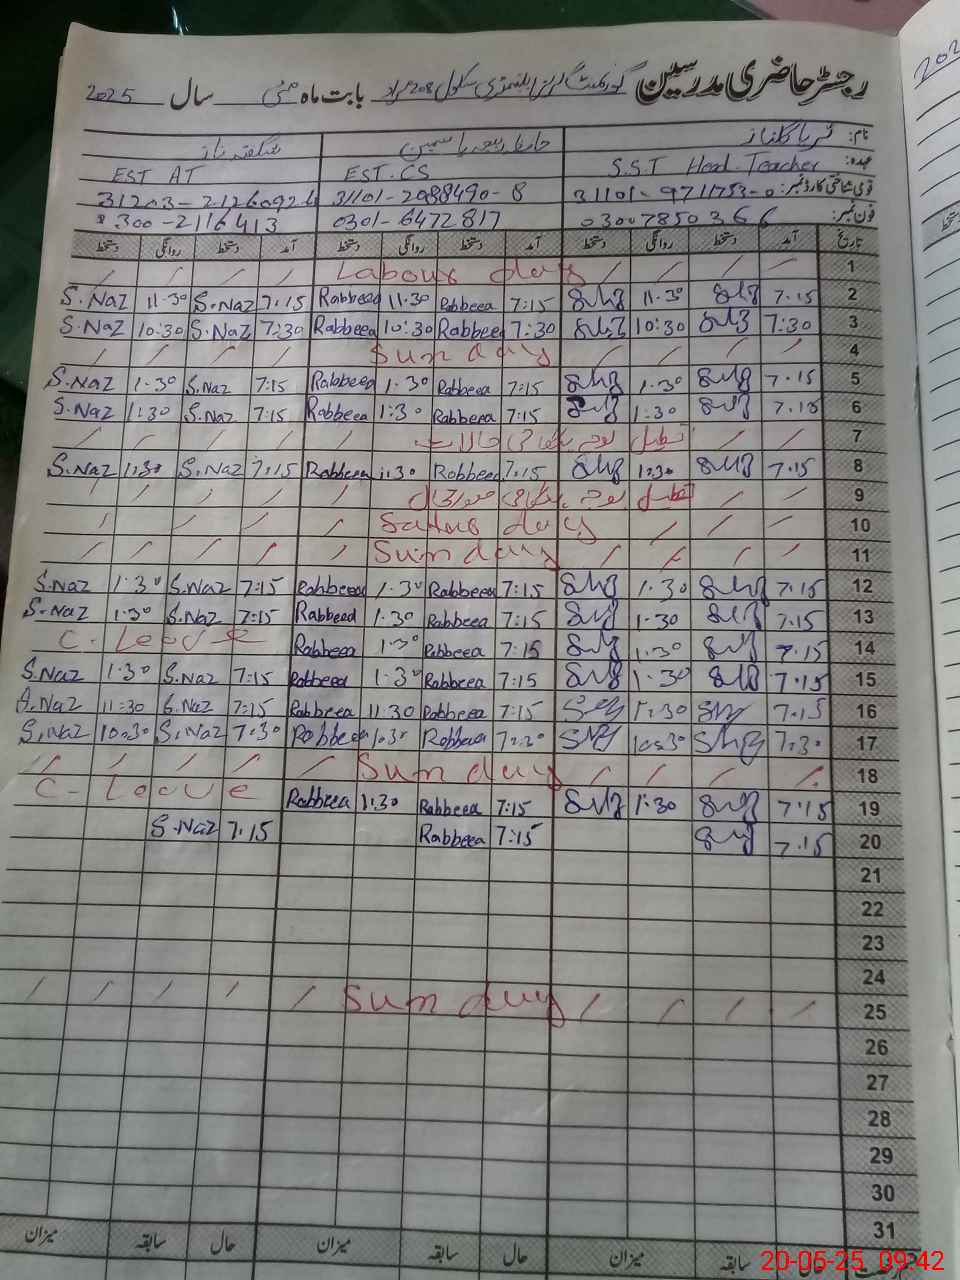 رجسٹر حاضری مدرسین گورنمنٹ گرلز ایلیمنٹری سکول 208 مراد بابت ماہ مئی سال 2025
نام: ثریا گلناز حافظہ ربیعہ یاسمین شگفتہ ناز
عہدہ: S.S.T Head-Teacher EST.CS EST AT
قومی شناختی کارڈ نمبر: 31101-9711753-0 31101-2088490-8
فون نمبر: 03007850366 0301-6472817 0300-2116413
تاریخ آمد دستخط روانگی دستخط آمد دستخط روانگی دستخط آمد دستخط روانگی دستخط
1 / / / / Labour day / / / /
2 7.15 11.30 7:15 Rabbeea 11.30 Rabbeea 7.15 S.Naz 11.30 S.Naz
3 7:30 10:30 7:30 Rabbeea 10:30 Rabbeea 7:30 S.Naz 10:30 S.Naz
4 / / / / Sunday / / / / /
5 7.15 1.30 7:15 Rabbeea 1.30 Rabbeea 7:15 S.Naz 1.30 S.Naz
6 7.15 1:30 7:15 Rabbeea 1:30 Rabbeea 7:15 S.Naz 1:30 S.Naz
7 / / تعطیل بوجہ ہنگامی حالات / / / / /
8 7.15 1:30 7:15 Rabbeea 1:30 Rabbeea 7:15 S.Naz 1:30 S.Naz
9 / / تعطیل بوجہ ہنگامی صورتحال / / / / /
10 / / / / Saturday / / / / /
11 / / / / Sunday / / / / /
12 7.15 1.30 7:15 Rabbeea 1.30 Rabbeea 7:15 S.Naz 1.30 S.Naz
13 7.15 1.30 7:15 Rabbeea 1.30 Rabbeea 7:15 S.Naz 1.30 S.Naz
14 7.15 1.30 7:15 Rabbeea 1.30 Rabbeea C-Leave
15 7.15 1.30 7:15 Rabbeea 1.30 Rabbeea 7:15 S.Naz 1.30 S.Naz
16 7.15 7:15 Rabbeea 11.30 Rabbeea 7:15 S.Naz 11:30 S.Naz
17 7.30 10:30 7:30 Rabbeea 10:30 Rabbeea 7:30 S.Naz 10:30 S.Naz
18 / / / / Sunday / / / / /
19 7.15 1:30 7:15 Rabbeea 1:30 Rabbeea C-Leave
20 7.15 7:15 Rabbeea 7:15 S.Naz
21
22
23
24
25 / / / / Sunday / / / / /
26
27
28
29
30
31
حال سابقہ میزان حال سابقہ میزان حال سابقہ میزان
20-05-25 09:42